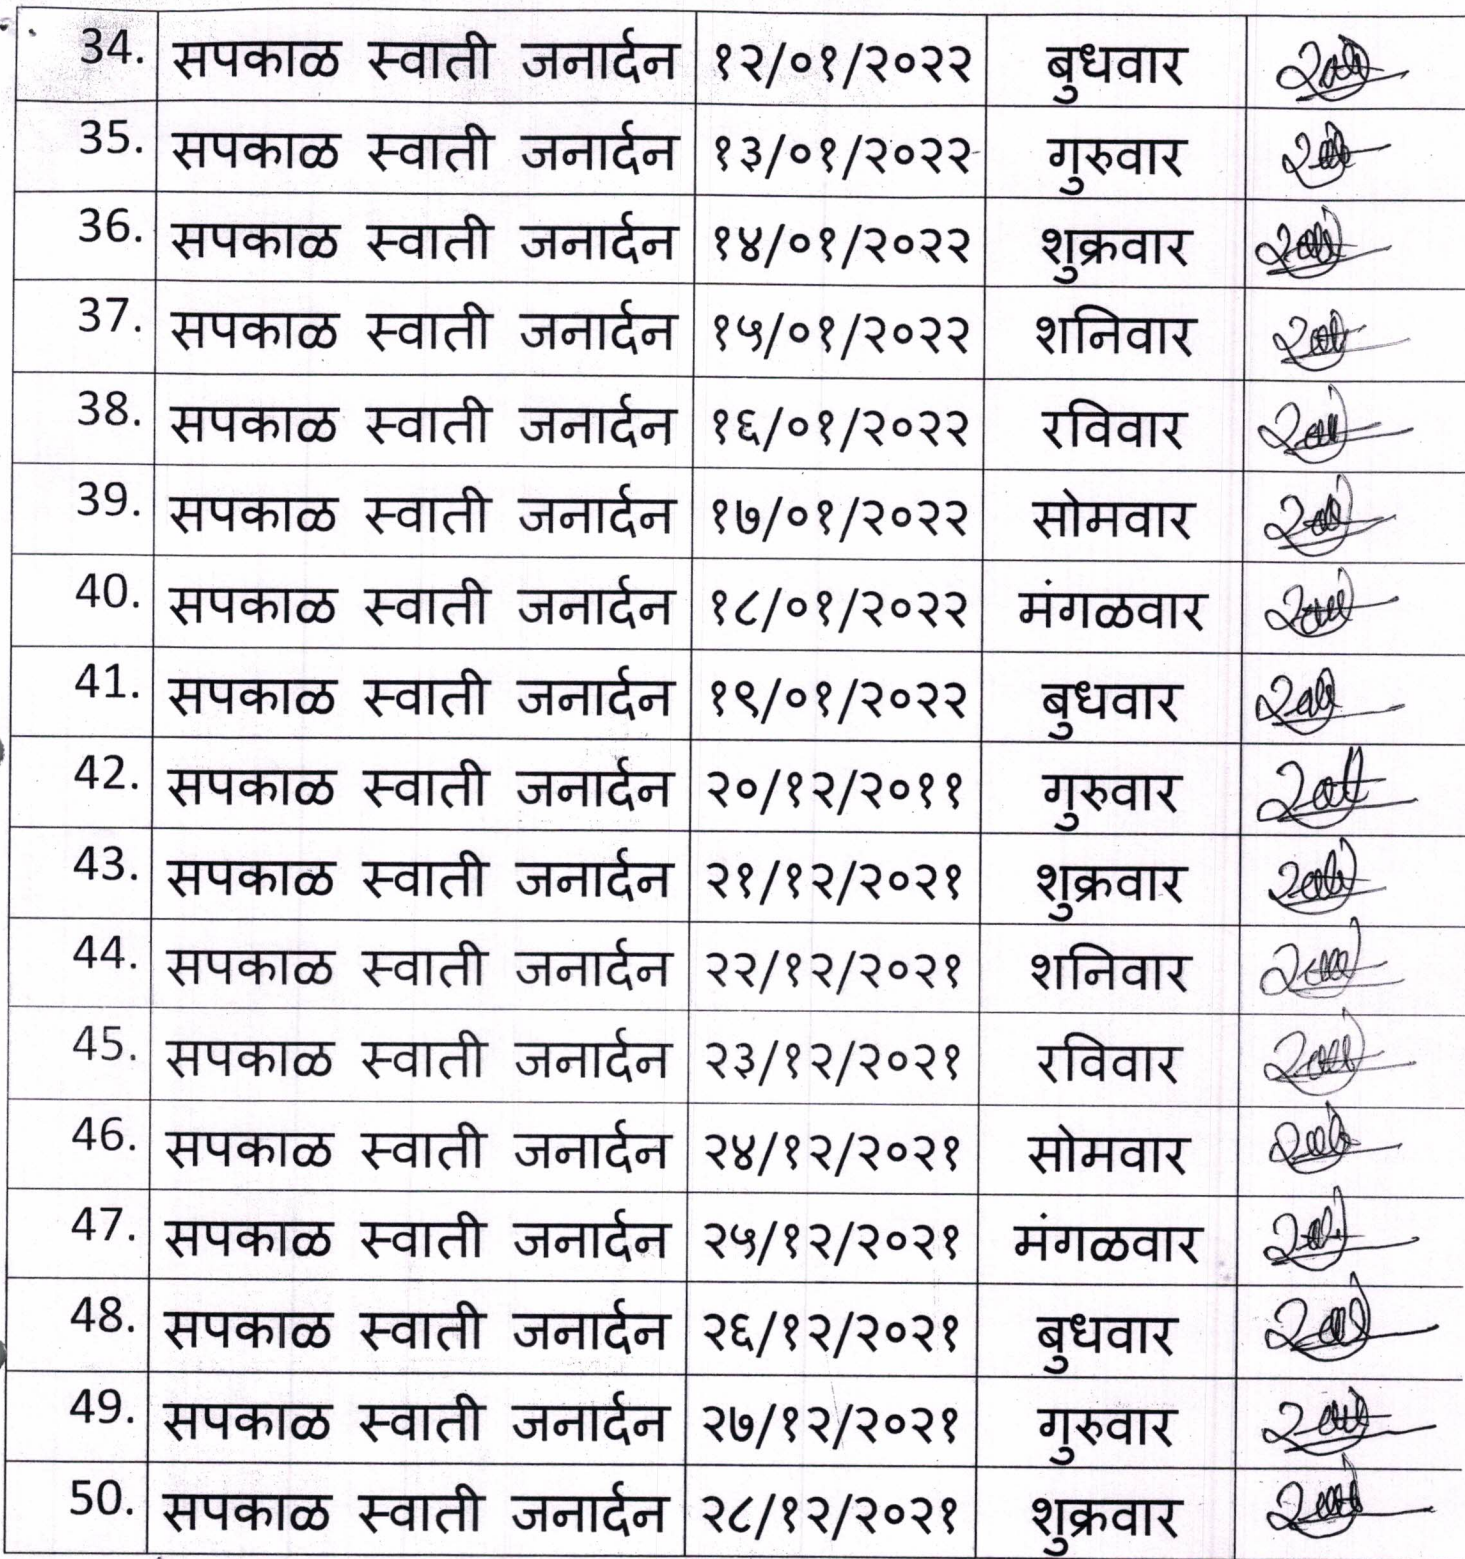 34. सपकाळ स्वाती जनार्दन १२/०१/२०२२ बुधवार
35. सपकाळ स्वाती जनार्दन १३/०१/२०२२ गुरुवार
36. सपकाळ स्वाती जनार्दन १४/०१/२०२२ शुक्रवार
37. सपकाळ स्वाती जनार्दन १५/०१/२०२२ शनिवार
38. सपकाळ स्वाती जनार्दन १६/०१/२०२२ रविवार
39. सपकाळ स्वाती जनार्दन १७/०१/२०२२ सोमवार
40. सपकाळ स्वाती जनार्दन १८/०१/२०२२ मंगळवार
41. सपकाळ स्वाती जनार्दन १९/०१/२०२२ बुधवार
42. सपकाळ स्वाती जनार्दन २०/१२/२०११ गुरुवार
43. सपकाळ स्वाती जनार्दन २१/१२/२०२१ शुक्रवार
44. सपकाळ स्वाती जनार्दन २२/१२/२०२१ शनिवार
45. सपकाळ स्वाती जनार्दन २३/१२/२०२१ रविवार
46. सपकाळ स्वाती जनार्दन २४/१२/२०२१ सोमवार
47. सपकाळ स्वाती जनार्दन २५/१२/२०२१ मंगळवार
48. सपकाळ स्वाती जनार्दन २६/१२/२०२१ बुधवार
49. सपकाळ स्वाती जनार्दन २७/१२/२०२१ गुरुवार
50. सपकाळ स्वाती जनार्दन २८/१२/२०२१ शुक्रवार